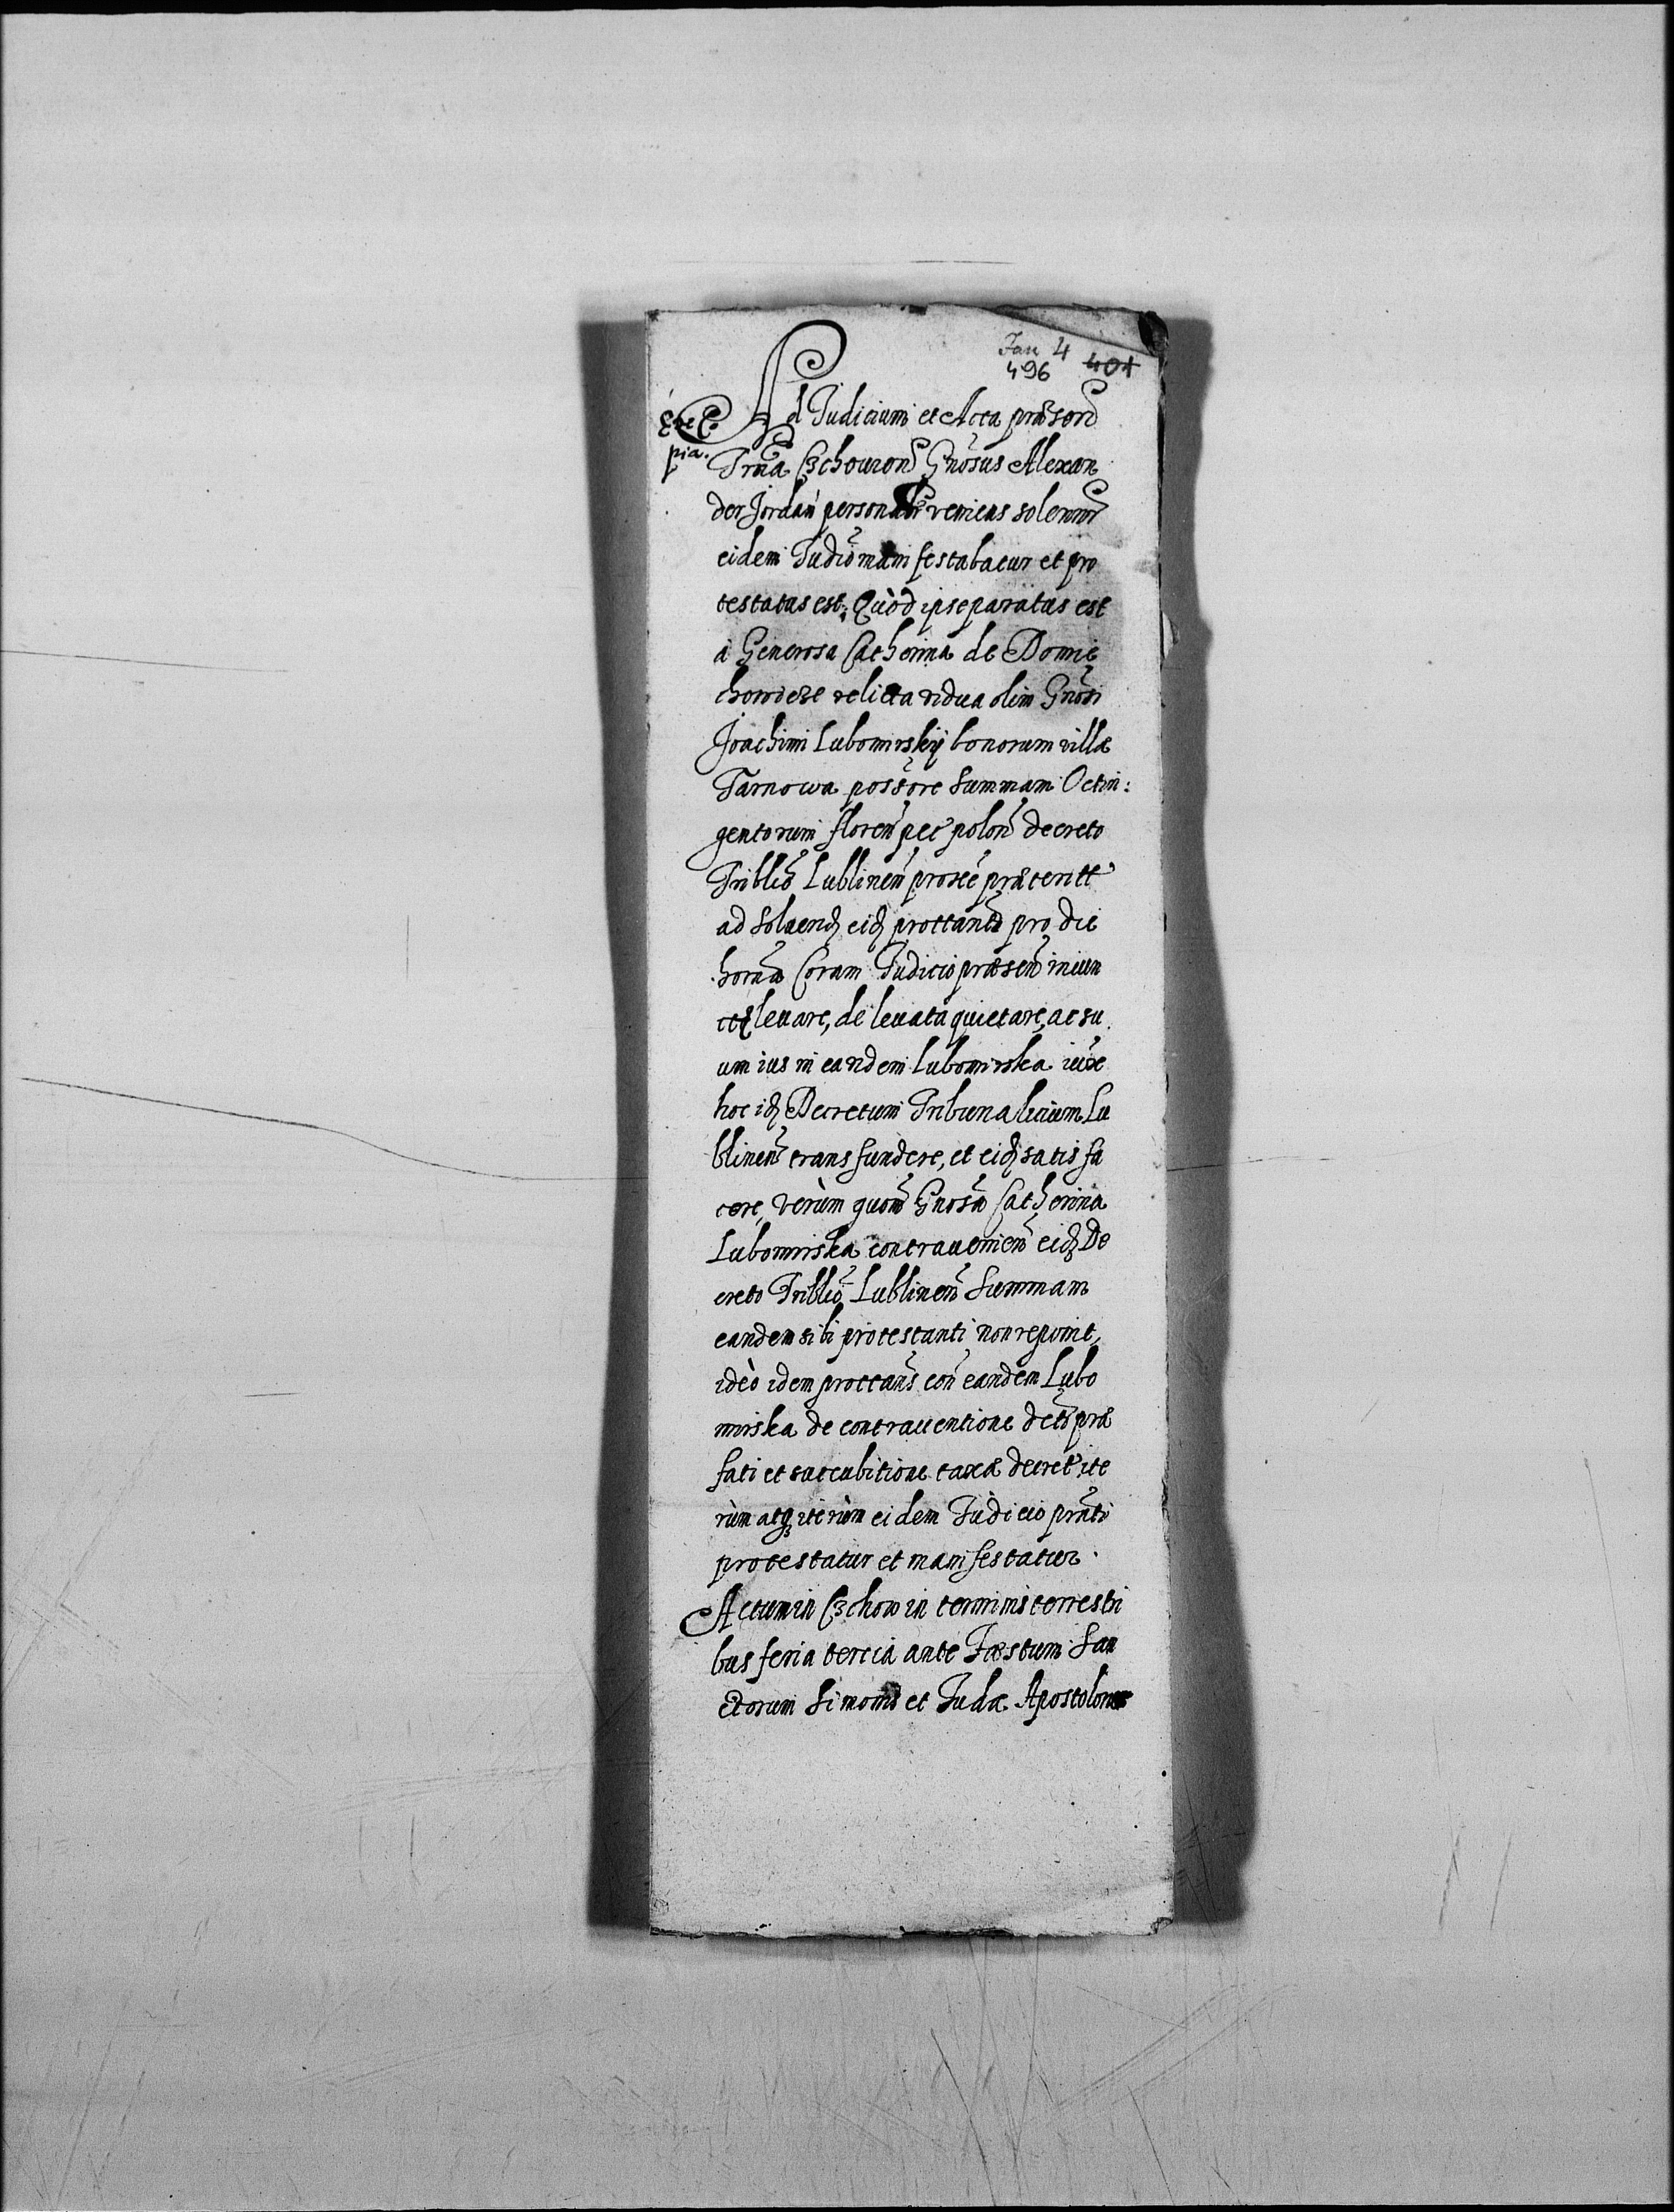 Jan 4 401
496
Ad Judicium et Acta præsen
pia. Trrña Czchovien Gnosus Alexan
der Jordan personalr veniens solennr
eidem Judiõ manifestabatur et pro
testatus est: Quòd ipse paratus est
à Generosa Catherina de Domie
chowicze relicta vidua olim Gnosi
Joachimi Lubomirskÿ bonorum villæ
Tarnowa possore summam Octin:
gentorum floren pec polon decreto
Triblis Lublinen prox præteritt
ad solvend eid prottanti pro die
horna Coram Judicio præsen iniun
levare, de levata quietare, ac su
um ius in eandem Lubomirska iuxe
hoc id Decretum Tribunalicium Lu
blinen transfundere, et eid satisfa
cere, verùm quom Gnosa Catherina
Lubomirska contravenien eid De
creto Triblio Lublinen Summam
eandem sibi protestanti non reponit,
ideò idem prottans con eandem Lubo
mirska de contraventione deti præ
fati et succubitione taxæ decret ite
rùm atq iterùm eidem Judicio prnti
protestatur et manifestatur.
Actum in Czchow in terminis terrestri
bus feria tercia ante Fæstum San
ctorum Simonis et Judæ Apostolorum